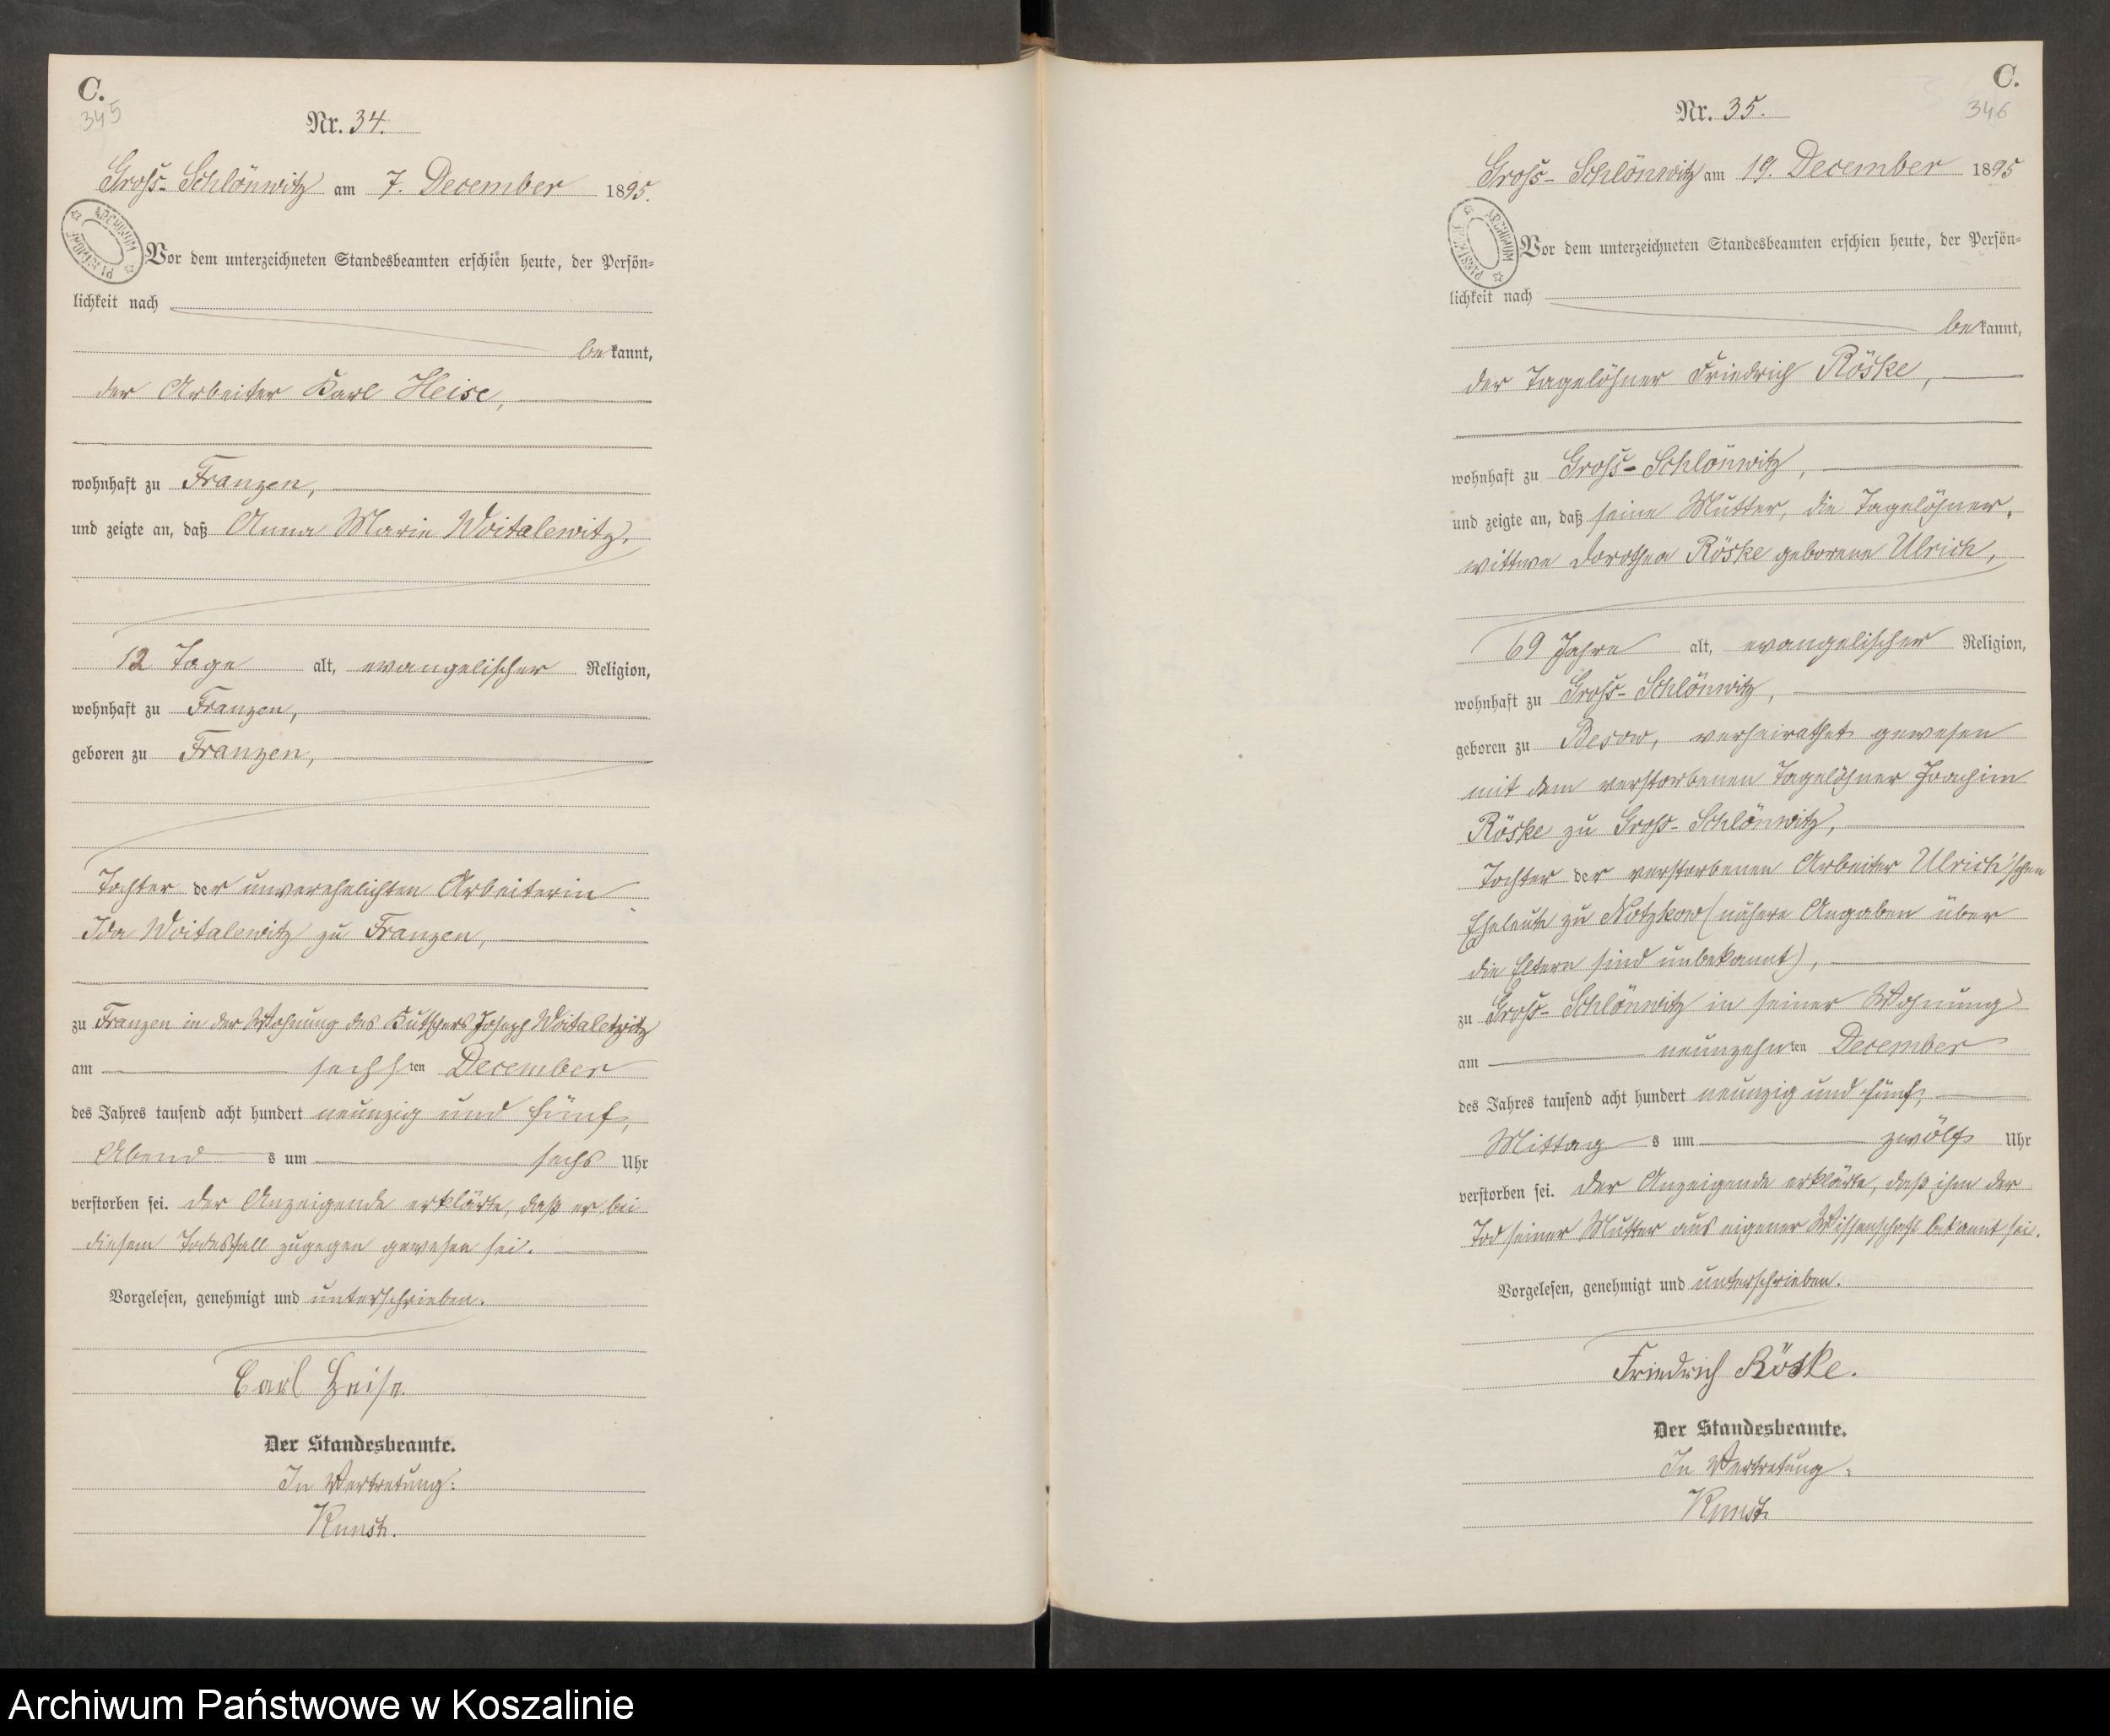 C.
345
Nr. 34.
Groß-Schlönwitz am 7. December 1895.
ARCHIWUM PAŃSTWOWE
Vor dem unterzeichneten Standesbeamten erschien heute, der Persön=
lichkeit nach
bekannt,
der Arbeiter Karl Heise,
wohnhaft zu Franzen,
und zeigte an, daß Anna Marie Woitalewitz,
12 Tage alt, evangelischer Religion,
wohnhaft zu Franzen,
geboren zu Franzen,
Tochter der unverehelichten Arbeiterin
Ida Woitalewitz zu Franzen,
zu Franzen in der Wohnung des Kutschers Joseph Woitalewitz
am sechsten December
des Jahres tausend acht hundert neunzig und fünf,
Abends um sechs Uhr
verstorben sei. Der Anzeigende erklärte, daß er bei
diesem Todesfall zugegen gewesen sei.
Vorgelesen, genehmigt und unterschrieben.
Carl Heise.
Der Standesbeamte.
In Vertretung:
Kunst.
C.
346
Nr. 35.
Groß-Schlönwitz am 19. December 1895
ARCHIWUM PAŃSTWOWE
Vor dem unterzeichneten Standesbeamten erschien heute, der Persön=
lichkeit nach
bekannt,
der Tagelöhner Friedrich Röske,
wohnhaft zu Groß-Schlönwitz,
und zeigte an, daß seine Mutter, die Tagelöhner-
wittwe Dorothea Röske geborene Ulrich,
69 Jahre alt, evangelischer Religion,
wohnhaft zu Groß-Schlönwitz,
geboren zu Besow, verheirathet gewesen
mit dem verstorbenen Tagelöhner Joachim
Röske zu Groß-Schlönwitz,
Tochter der verstorbenen Arbeiter Ulrich'schen
Eheleute zu Notzkow (nähere Angaben über
die Eltern sind unbekannt),
zu Groß-Schlönwitz in seiner Wohnung
am neunzehnten December
des Jahres tausend acht hundert neunzig und fünf,
Mittags um zwölf Uhr
verstorben sei. Der Anzeigende erklärte, daß ihm der
Tod seiner Mutter aus eigener Wissenschaft bekannt sei.
Vorgelesen, genehmigt und unterschrieben.
Friedrich Röske.
Der Standesbeamte.
In Vertretung:
Kunst.
Archiwum Państwowe w Koszalinie